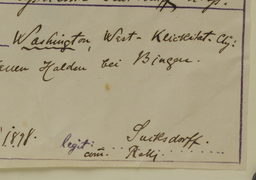 Washington, West-Klickitat-Cty:
Halden bei Bingen.
1898.
legit: Suksdorff.
com.